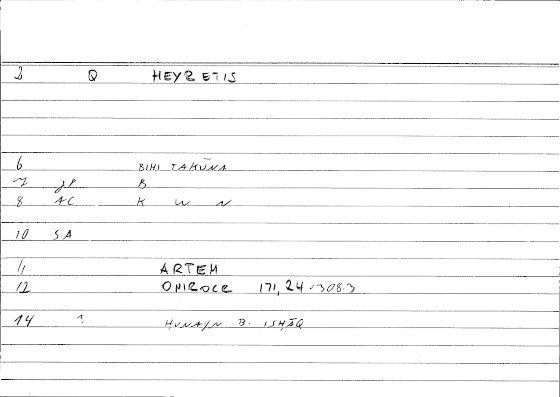 2 Q HEYRETIS
6 BIHI TAKŪNA
7 JP B
8 AC K W N
10 SA
11 ARTEM
12 ONIROCR 171,24-308.3
14 ? ḤUNAYN B. ISḤĀQ